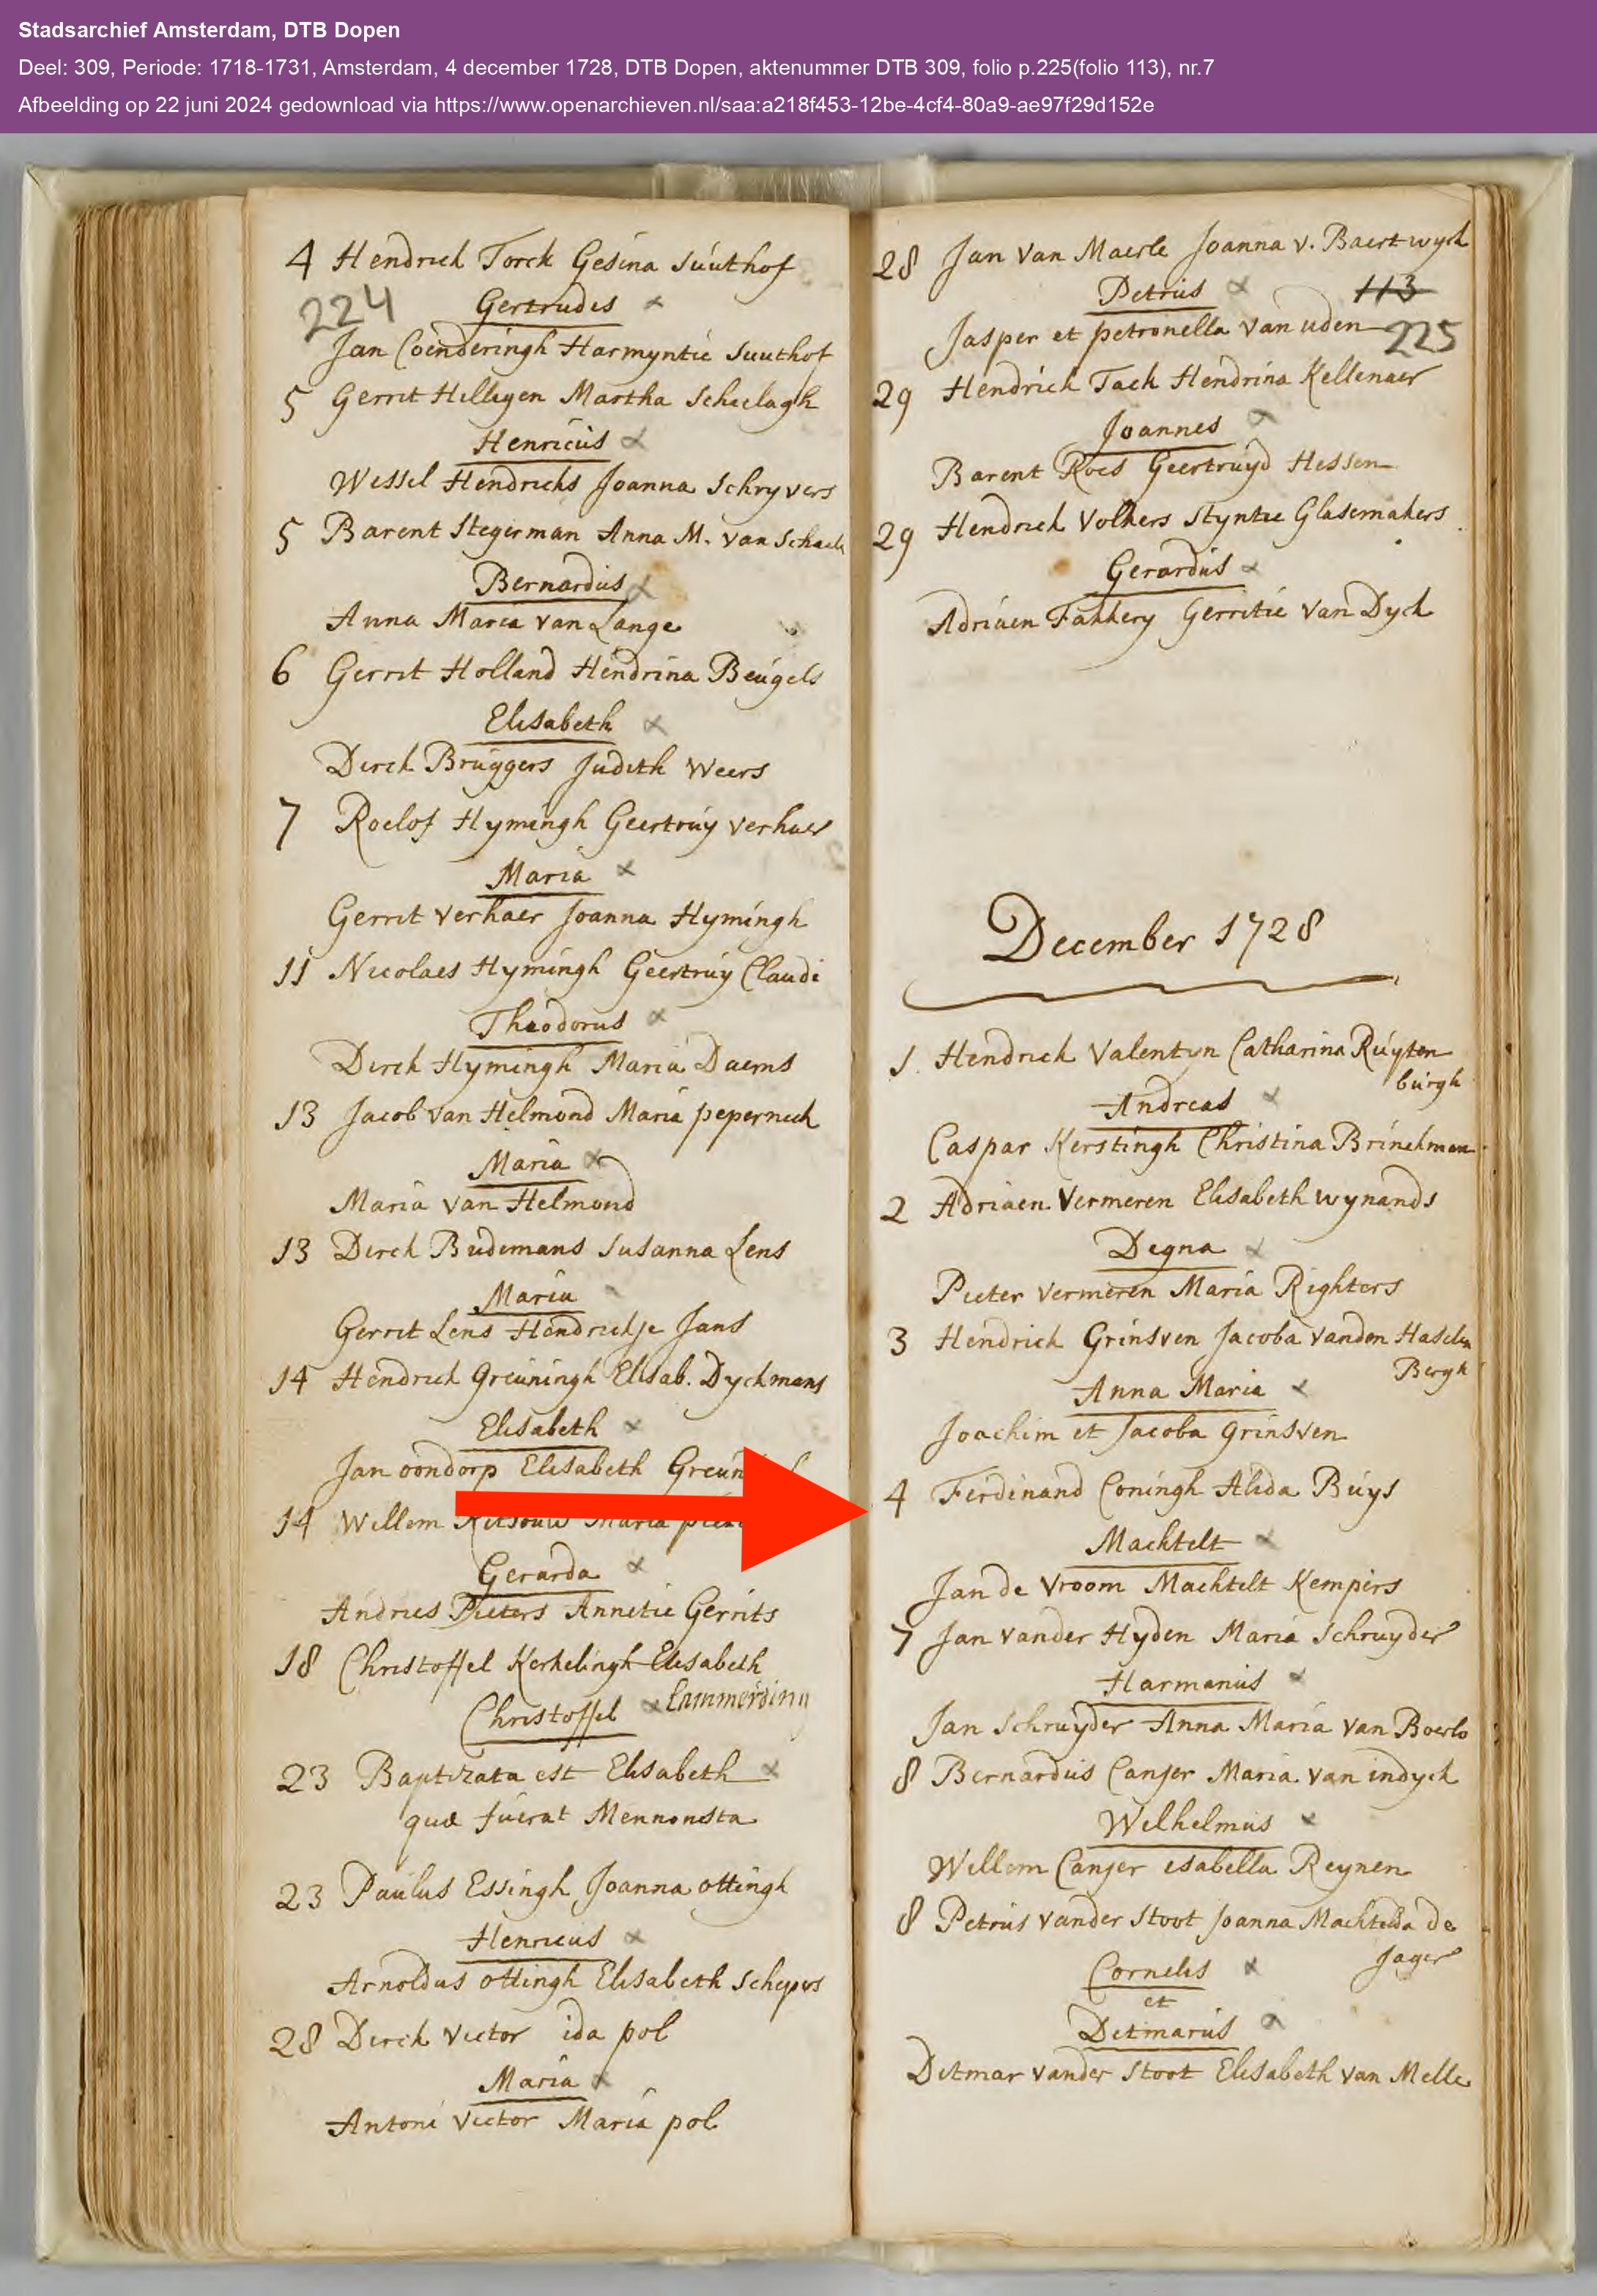 Stadsarchief Amsterdam, DTB Dopen
Deel: 309, Periode: 1718-1731, Amsterdam, 4 december 1728, DTB Dopen, aktenummer DTB 309, folio p.225(folio 113), nr.7
Afbeelding op 22 juni 2024 gedownload via https://www.openarchieven.nl/saa:a218f453-12be-4cf4-80a9-ae97f29d152e
4 Hendrick Torck Gesina Suuthof
224 Gertrudis
Jan Coenderingh Harmyntie Suuthof
5 Gerrit Hillegen Martha Scheelagh
Henricus
Wessel Hendricks Joanna Schryvers
5 Barent Stegerman Anna M. van Schaek
Bernardus
Anna Maria van Lange
6 Gerrit Holland Hendrina Beugels
Elisabeth
Derck Bruggers Judith Weers
7 Roelof Hymingh Geertruy verhaer
Maria
Gerrit verhaer Joanna Hymingh
11 Nicolaes Hymingh Geertruy Claudi
Theodorus
Derck Hymingh Maria Daems
13 Jacob van Helmond Maria peperneck
Maria
Maria van Helmond
13 Derck Budemans Susanna Lens
Maria
Gerrit Lens Hendrickje Jans
14 Hendrick Greuningh Elisab. Dyckmans
Elisabeth
Jan oondorp Elisabeth
14 Willem
Gerarda
Andries Pieters Annetie Gerrits
18 Christoffel Kerkelingh Elisabeth
Christoffel Lammerding
23 Baptizata est Elisabeth
quæ fuerat Mennonista
23 Paulus Essingh Joanna ottingh
Henricus
Arnoldus ottingh Elisabeth Schepers
28 Derck victor ida pol
Maria
Antoni victor Maria pol
28 Jan van Maerle Joanna v. Baertwyck
Petrus 113
Jasper et petronella van uden 225
29 Hendrick Tack Hendrina Kellenaer
Joannes
Barent Roes Geertruyd Hessen
29 Hendrick Volkers Styntie Glasemakers
Gerardus
Adriaen Fakkery Gerritie van Dyck
December 1728
1. Hendrick Valentyn Catharina Ruyten
burgh
Andreas
Caspar Kerstingh Christina Brinckman
2 Adriaen Vermeren Elisabeth wynands
Degna
Pieter vermeren Maria Righters
3 Hendrick Grinsven Jacoba vanden Haselen
Bergh
Anna Maria
Joachim et Jacoba Grinsven
4 Ferdinand Coningh Alida Buys
Machtelt
Jan de Vroom Machtelt Kempers
7 Jan vander Hyden Maria Schruyder
Harmanus
Jan Schruyder Anna Maria van Boerlo
8 Bernardus Canjer Maria van indyck
Wilhelmus
Willem Canjer isabella Reynen
8 Petrus vander Stoot Joanna Machtelda de
Jager
Cornelis
et
Ditmarus
Ditmar vander Stoot Elisabeth van Melle